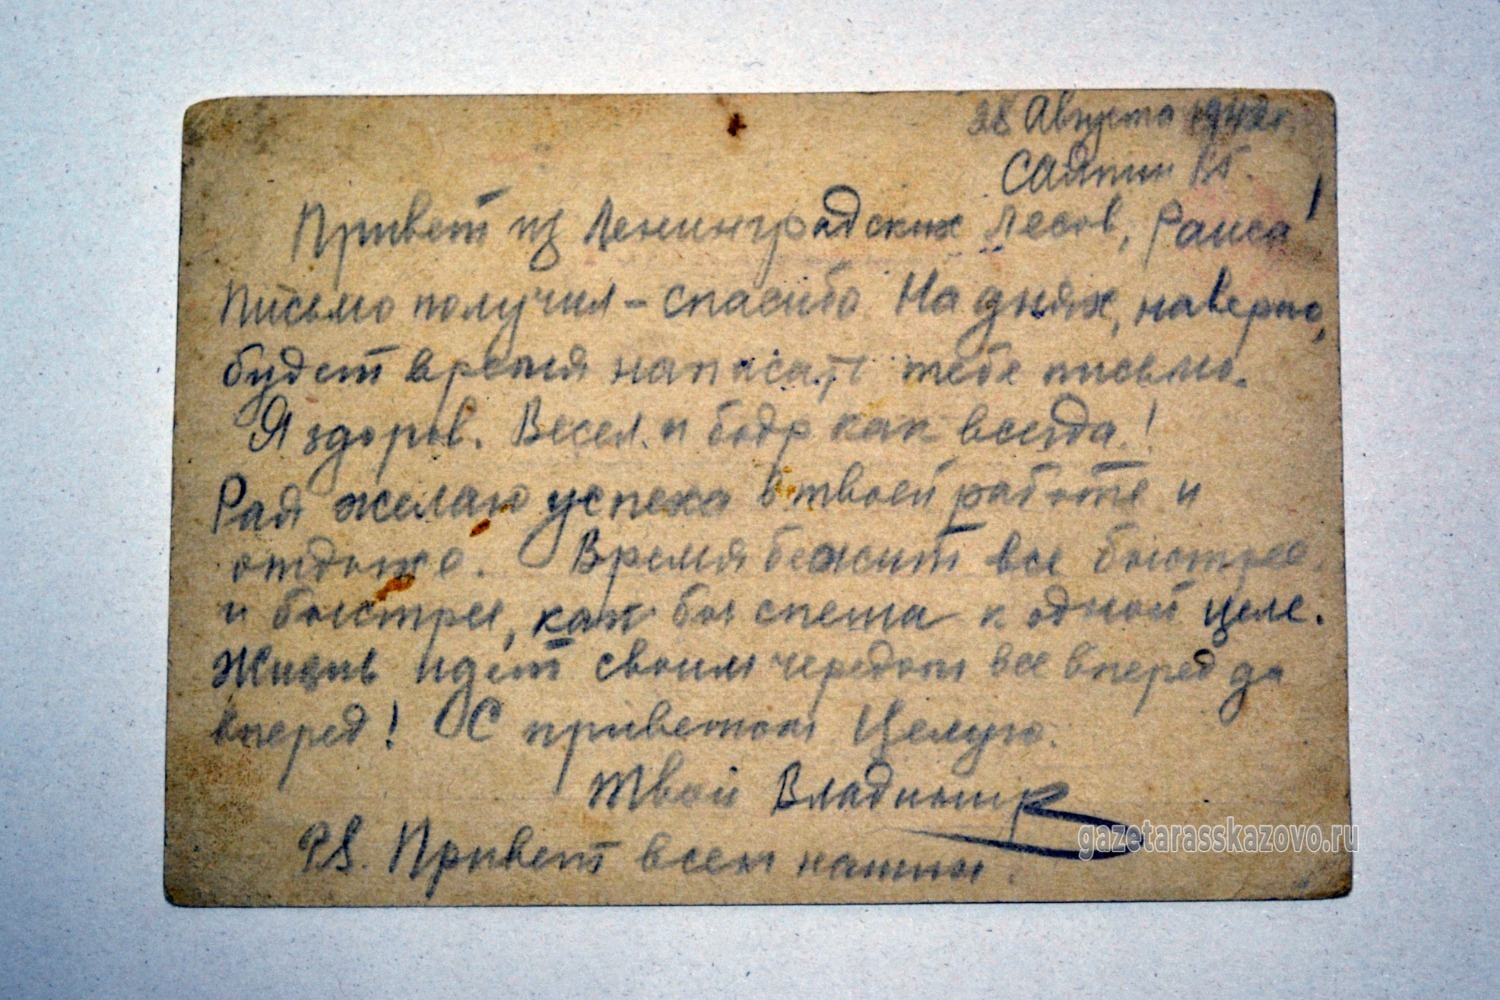 28 Августа 1942г.
Саяпин ВГ.
Привет из Ленинградских лесов, Раиса!
Письмо получил – спасибо. На днях, наверно,
будет время написать тебе письмо.
Я здоров. Весел и бодр как всегда!
Рая желаю успеха в твоей работе и
отдыхе. Время бежит все быстрее
и быстрее, как бы спеша к одной цели.
Жизнь идет своим чередом все вперед да
вперед! С приветом Целую.
Твой Владимир
gazetarasskazovo.ru
P.S. Привет всем нашим.